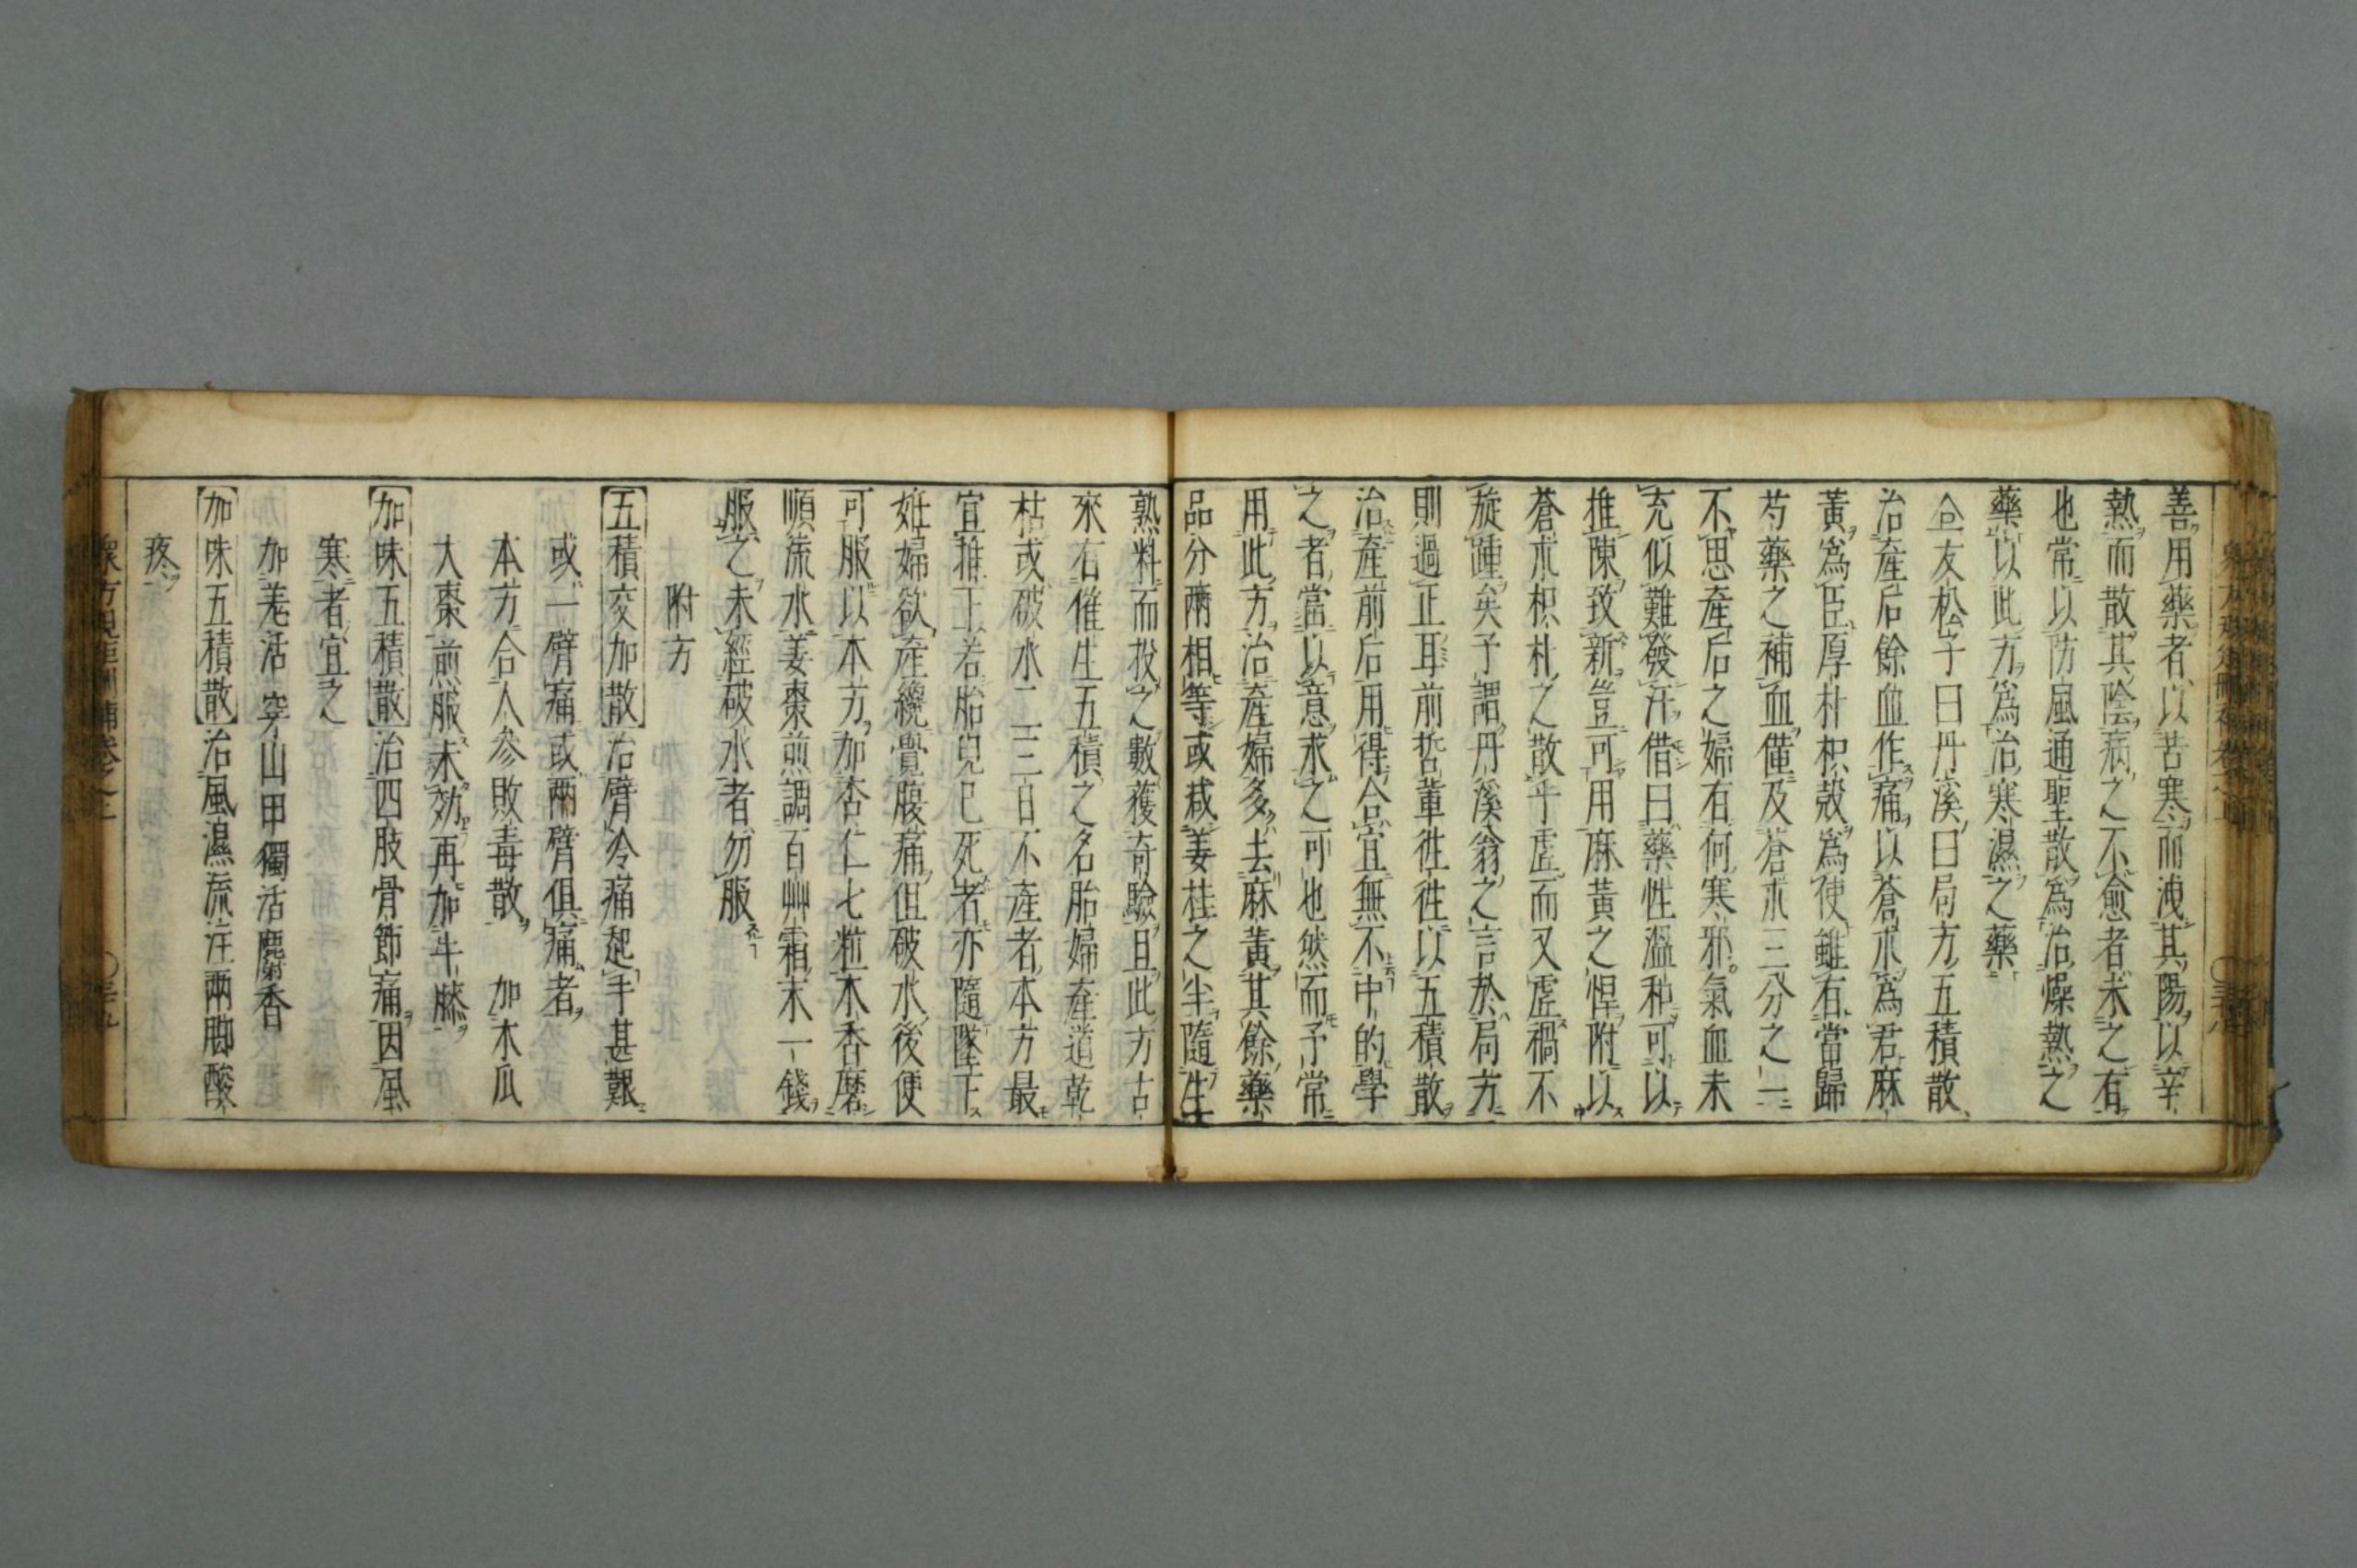 善用藥者以苦寒而洩其陽以辛
熱而散其陰病之不愈者未之有
也常以防風通聖散爲治燥熱之
藥以此方爲治寒濕之藥
仝友松子曰丹溪曰局方五積散
治產后餘血作痛以蒼朮爲君麻
黃爲臣厚朴枳殼爲使雖有當歸
芍藥之補血僅及蒼朮三分之一
不思產后之婦有何寒邪氣血未
充似難發汗借曰藥性溫和可以
推陳致新豈可用麻黃之悍附以
蒼朮枳朴之散乎虛而又虛禍不
旋踵矣予謂丹溪翁之言於局方
則過正耳前哲輩徃徃以五積散
治產前后用得合宜無不中的學
之者當以意求之可也然而予常
用此方治產婦多去麻黃其餘藥
品分兩相等或減姜桂之半隨生
熟料而投之數獲奇驗且此方古
來有催生五積之名胎婦產道乾
枯或破水二三日不產者本方最
宜推下若胎兒已死者亦隨墜下
妊婦欲產纔覺腹痛但破水後便
可服以本方加杏仁七粒木香磨
順流水姜棗煎調百艸霜末一錢
服之未經破水者勿服
附方
五積交加散治臂冷痛起手甚艱
或一臂痛或兩臂俱痛者
本方合人參敗毒散 加木瓜
大棗煎服未効再加牛膝
加味五積散治四肢骨節痛因風
寒者宜之
加羌活 穿山甲獨活麝香
加味五積散治風濕流注兩脚酸
疼